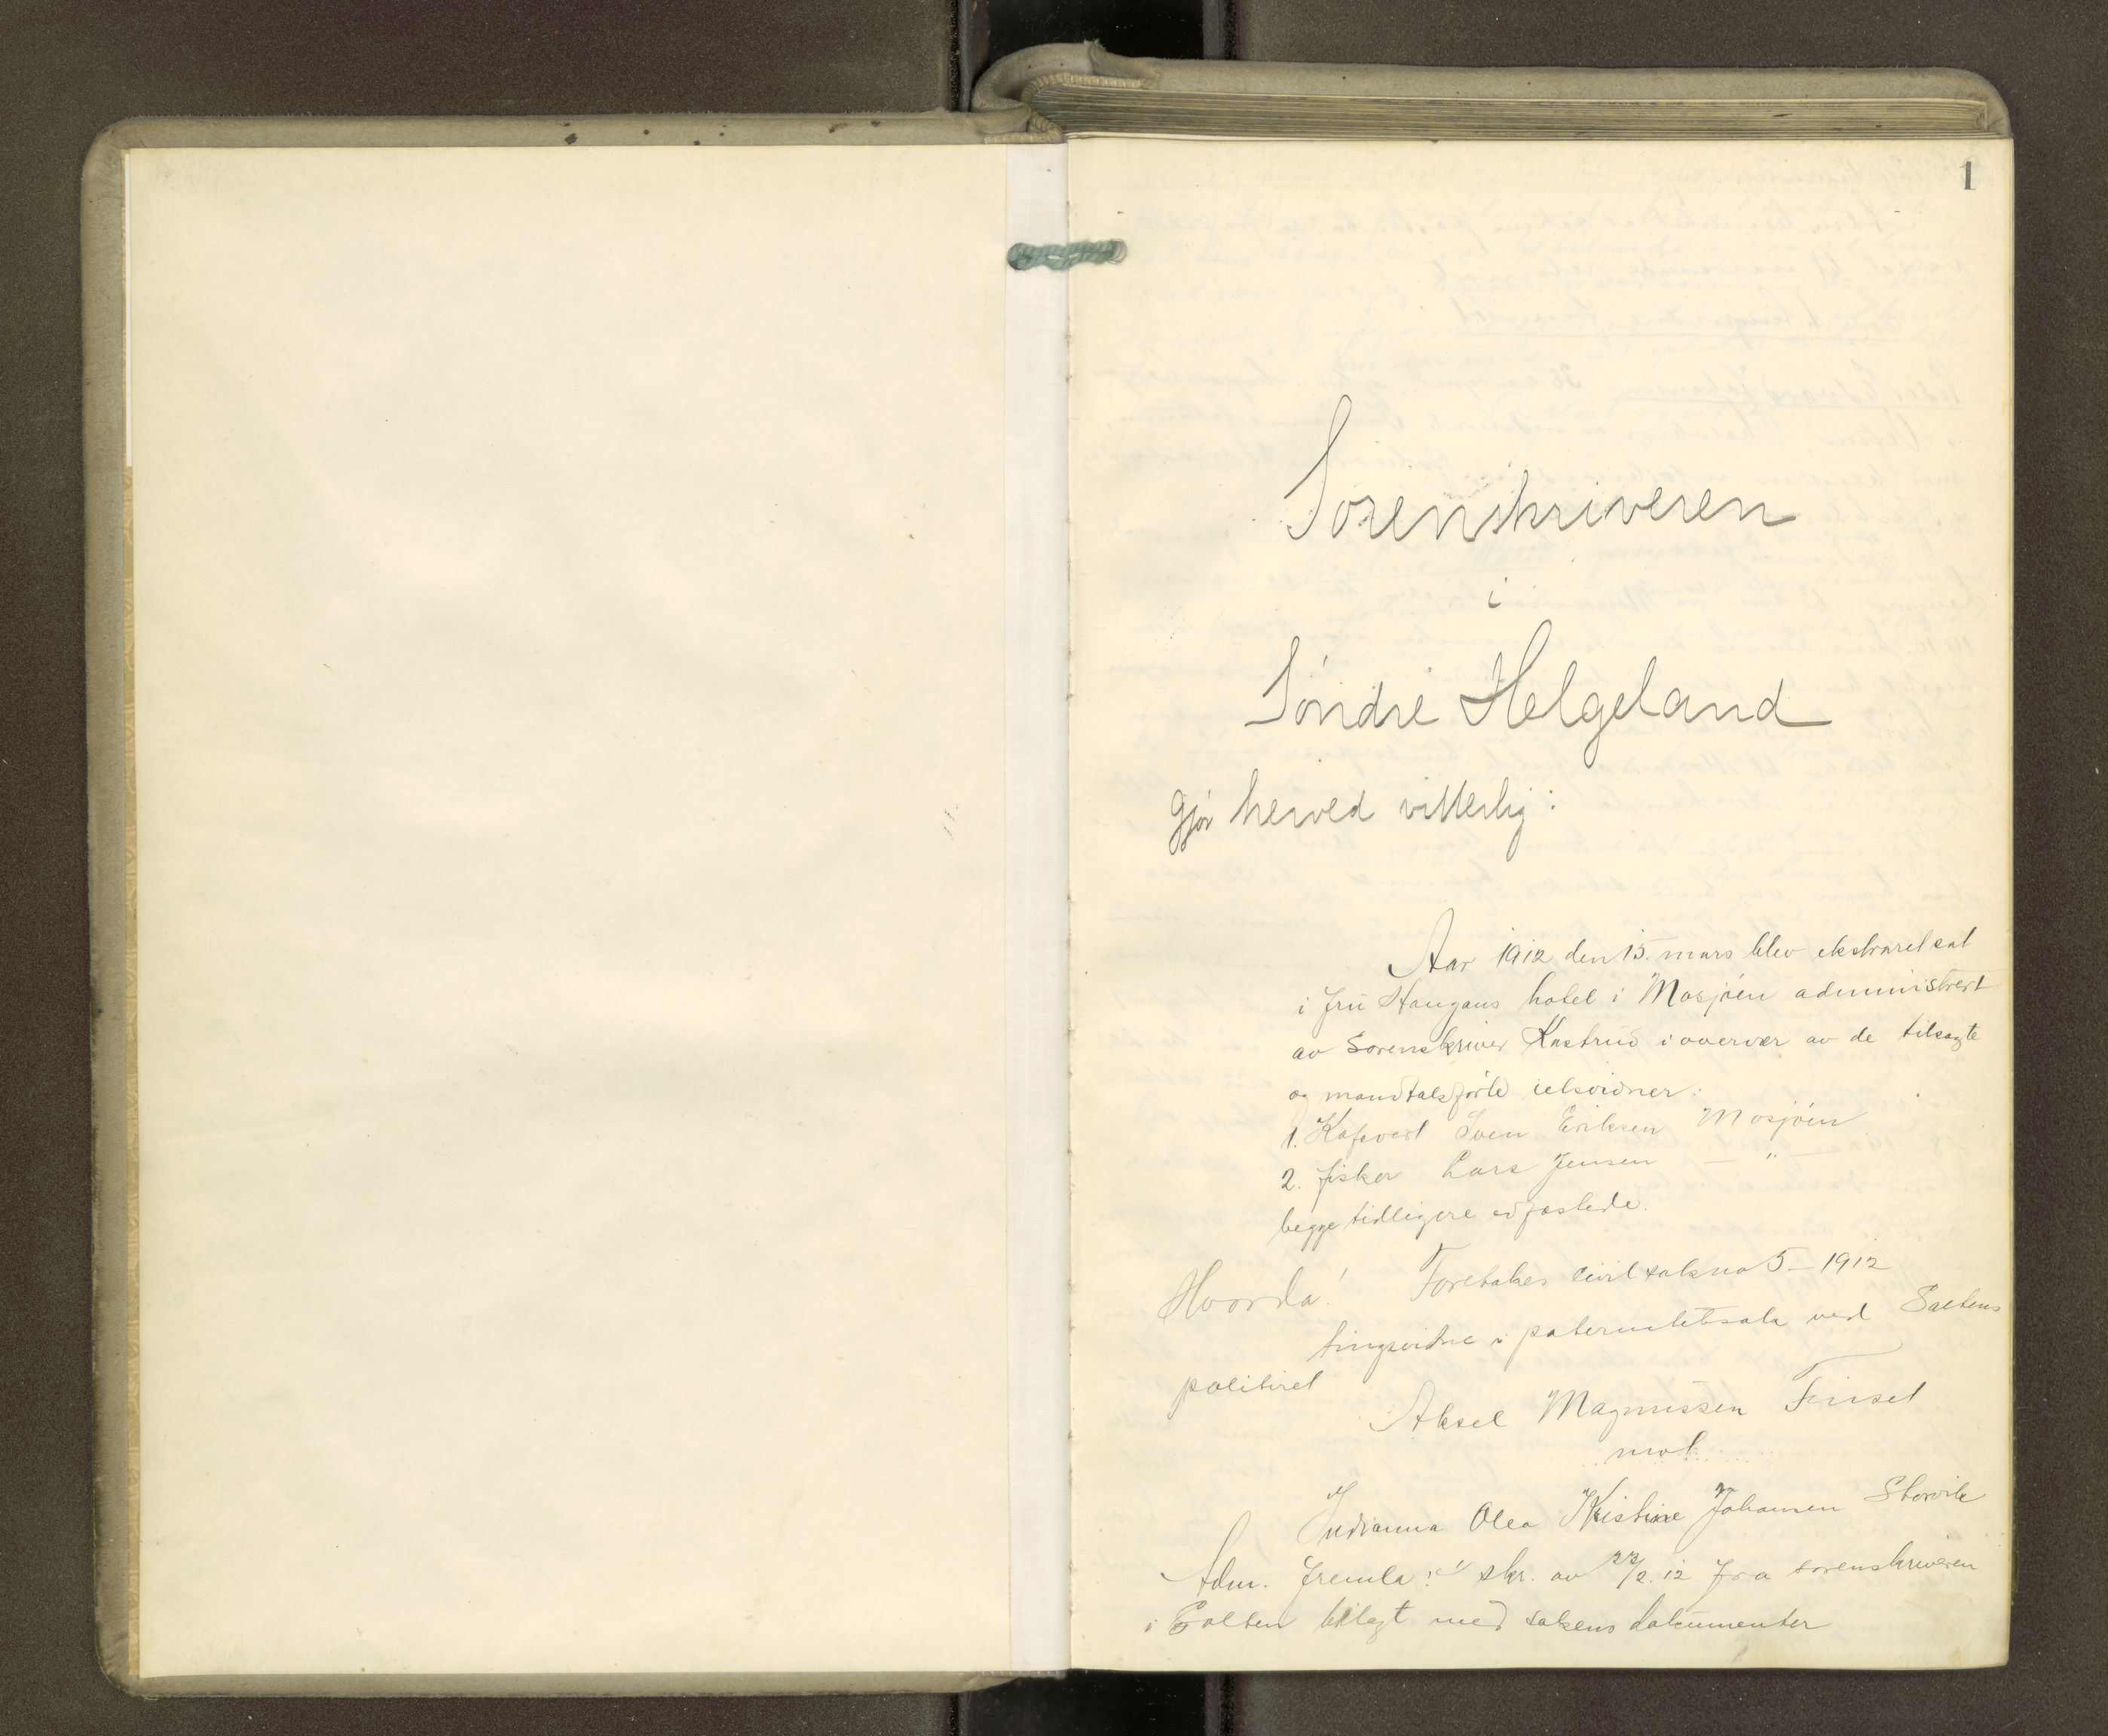 1
Sorenskriveren
i
Søndre Helgeland
gjør herved vitterlig:
Aar 1912 den 15. mars blev ekstraret sat
i fru Haugans hotel i Mosjøen administrert
av Sorenskriver Kastrud i overvær av de tilsagte
og mandtalsførte retsvidner:
1. Kafevert Sven Eriksen Mosjøen
2. fisker Lars Jensen — " —
begge tidligere edfæstede.
Hvorda! Foretokes civil sak no 5 – 1912
tingsvidne i paternitetssak ved Saltens
politiret
Aksel Magnussen Finset
mot
Indianna Olea Kristine Johansen Storvik
Adm. fremla: 1/ skr. av 22/2.12 fra sorenskriveren
i Salten bilagt med sakens dokumenter